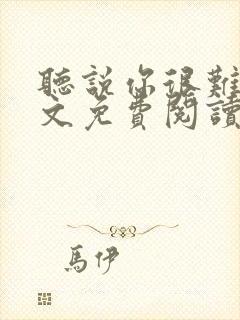 聽說你很難
文免費閱讀
馬伊